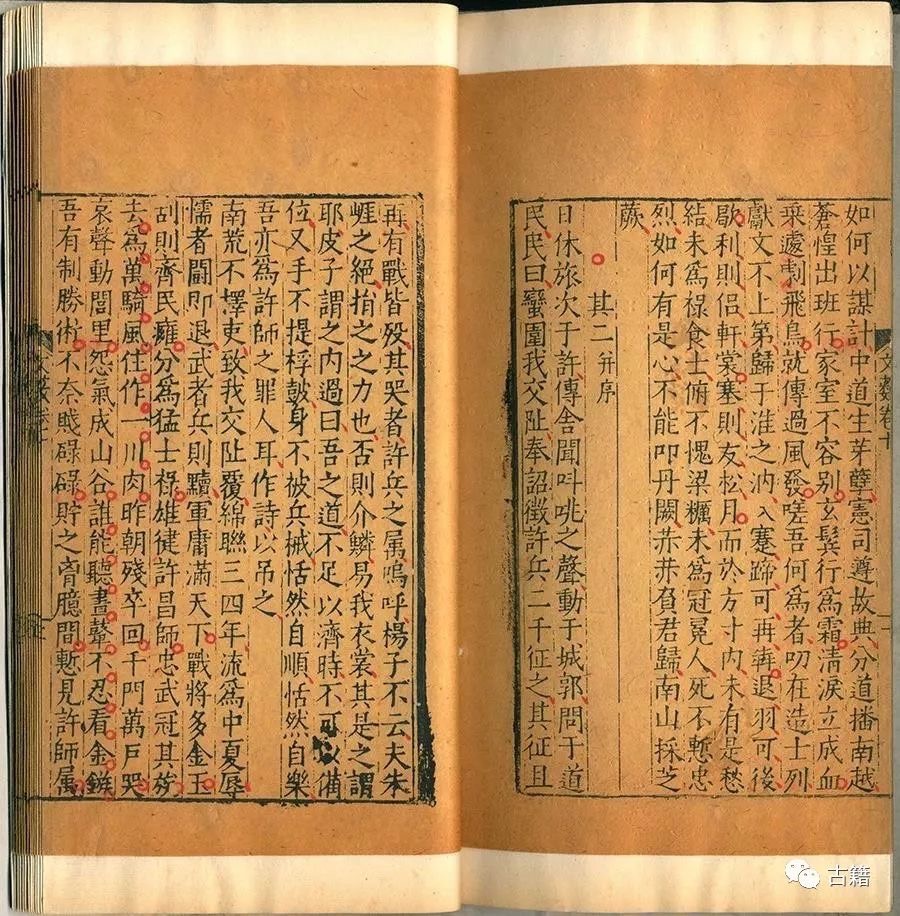 如何以謀計中道生芽孽憲司遵故典分道播南越
蒼惶出班行家室不容别玄鬂行爲霜清淚立成血
乗遽剌飛鳥就傳過風發嗟吾何爲者叨在造士列
獻文不上第歸于淮之汭入蹇蹄可再犇退羽可後
歇利則侣軒裳塞則友松月而於方寸内未有是愁
結未爲禄食士俯不愧梁糲未爲冠冕人死不慙忠
烈如何有是心不能叩丹闕赤赤負君歸南山採芝
蕨
其二并序
日休旅次于許傳舍聞呌咷之聲動于城郭問于道
民民曰蠻圍我交阯奉詔徴許兵二千征之其征且
文藪卷十
再有戰皆殁其哭者許兵之属嗚呼楊子不云夫朱
崕之絶捐之之力也否則介鱗易我衣裳其是之謂
耶皮子謂之内過曰吾之道不足以濟時不可以備
位又手不提桴鼓身不被兵械恬然自順恬然自樂
吾亦爲許師之罪人耳作詩以吊之
南荒不擇吏致我交阯覆綿聯三四年流爲中夏辱
懦者鬬即退武者兵則黷軍庸滿天下戰將多金玉
刮則齊民癰分爲猛士禄雄徤許昌師忠武冠其族
去爲萬騎風住作一川肉昨朝殘卒回千門萬戸哭
哀聲動閭里怨氣成山谷誰能聽晝聲不忍看金鏃
吾有制勝術不奈賤碌碌貯之胷臆間慙見許師属
文藪卷十
古籍